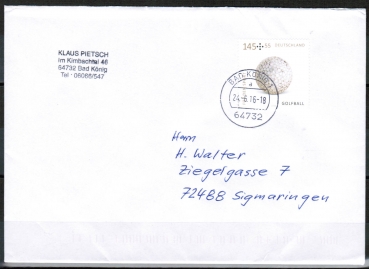 KLAUS PIETSCH
Im Kimbachtal 46
64732 Bad König
Tel · 06066/547
145+55 DEUTSCHLAND
GOLFBALL
BAD KÖNIG 1
a
24.-6.16-18
64732
Herrn
H. Walter
Ziegelgasse 7
72488 Sigmaringen